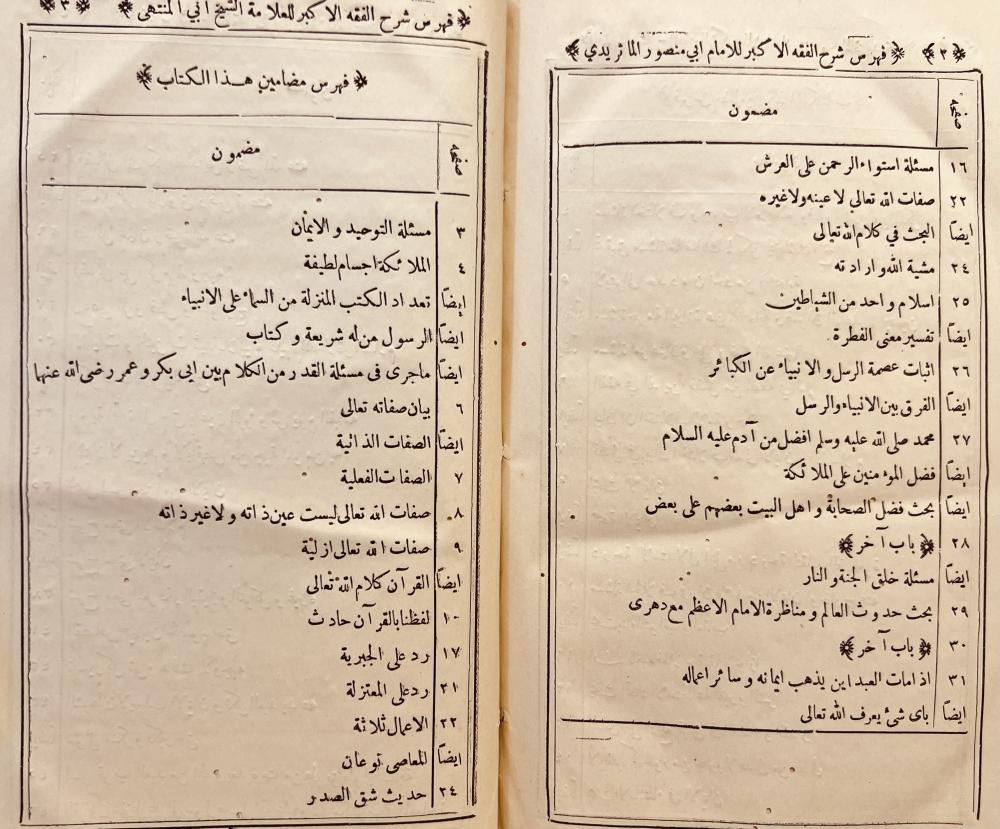 ﴿٣﴾ ﴿ فهرس شرح الفقه الاكبر للامام ابي منصور الماتريدي ﴾
صفحه مضمون
١٦ مسئلة استواء الرحمن على العرش
٢٢ صفات الله تعالى لا عينه ولا غيره
ايضاً البحث في كلام الله تعالى
٢٤ مشية الله و ارادته
٢٥ اسلام واحد من الشياطين
ايضاً تفسير معنى الفطرة
٢٦ اثبات عصمة الرسل و الانبياء عن الكبائر
ايضاً الفرق بين الانبياء والرسل
٢٧ محمد صلى الله عليه وسلم افضل من آدم عليه السلام
ايضاً فضل المؤمنين على الملائكة
ايضاً بحث فضل الصحابة و اهل البيت بعضهم على بعض
٢٨ ﴿ باب آخر ﴾
ايضاً مسئلة خلق الجنة و النار
٢٩ بحث حدوث العالم و مناظرة الامام الاعظم مع دهرى
٣٠ ﴿ باب آخر ﴾
٣١ اذا مات العبد اين يذهب ايمانه و سائر اعماله
ايضاً باى شئ يعرف الله تعالى
﴿ فهرس شرح الفقه الاكبر للعلامة الشيخ ابي المنتهى ﴾ ﴿٣﴾
﴿ فهرس مضامين هذا الكتاب ﴾
صفحه مضمون
٣ مسئلة التوحيد و الايمان
٤ الملائكة اجسام لطيفة
ايضاً تعداد الكتب المنزلة من السماء على الانبياء
ايضاً الرسول من له شريعة و كتاب
ايضاً ماجرى فى مسئلة القدر من الكلام بين ابى بكر و عمر رضى الله عنهما
٦ بيان صفاته تعالى
ايضاً الصفات الذاتية
٧ الصفات الفعلية
٨ صفات الله تعالى ليست عين ذاته و لا غير ذاته
٩ صفات الله تعالى ازلية
ايضاً القرآن كلام الله تعالى
١٠ لفظنا بالقرآن حادث
١٧ رد على الجبرية
٢١ رد على المعتزلة
٢٢ الاعمال ثلاثة
ايضاً المعاصى نوعان
٢٤ حديث شق الصدر